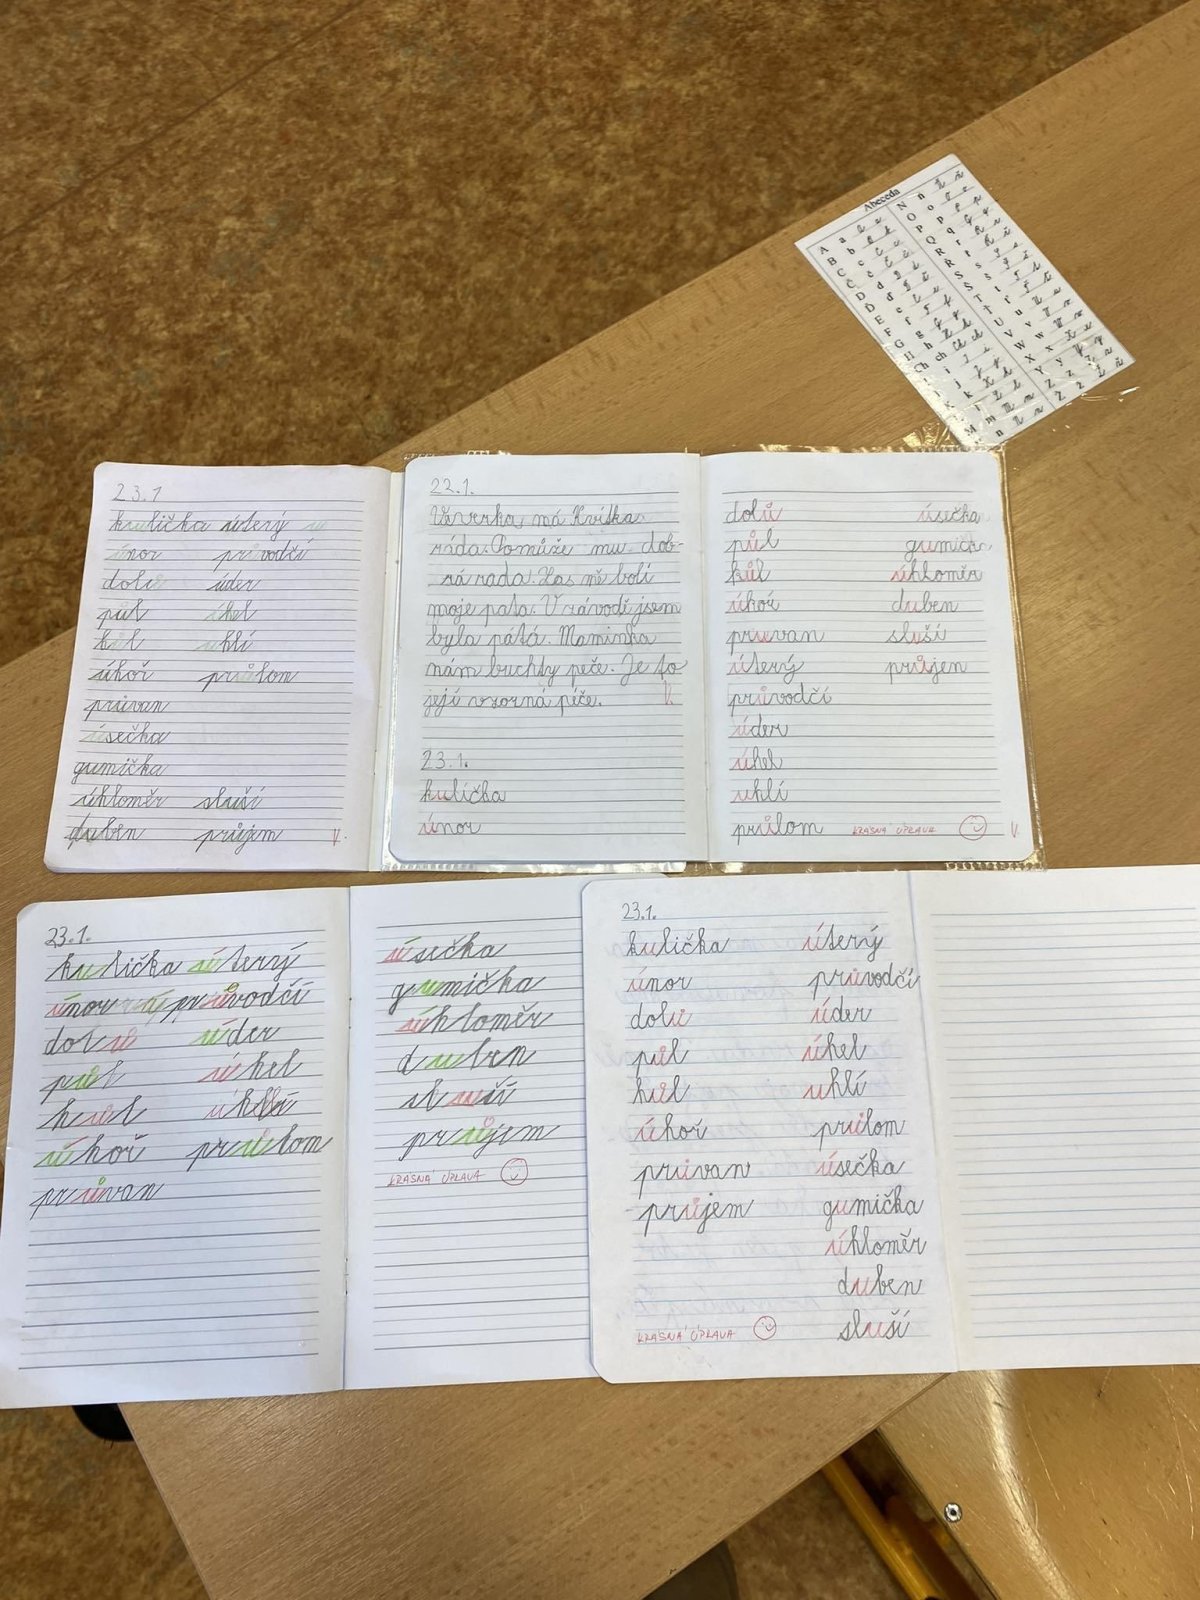 Abeceda
23.1
kulička úterý u
únor průvodčí
dolů úder
půl úhel
kůl uhlí
úhoř průlom
průvan
úsečka
gumička
úhloměr sluší
duben průjem V.
22.1.
Vzorka má Kvítka
ráda. Pomůže mu dob-
rá rada. Zas mě bolí
moje pata. V závodě jsem
byla pátá. Maminka
nám buchty peče. Je to
její vzorná péče. V.
23.1.
kulička
únor
dolů úsečka
půl gumička
kůl úhloměr
úhoř duben
pruvan sluší
úterý průjem
průvodčí
úder
úhel
uhlí
průlom KRÁSNÁ ÚPRAVA V.
23.1.
kulička úterý
únor průvodčí
dolů úder
půl úhel
kůl
úhoř průlom
průvan
úsečka
gumička
úhloměr
duben
sluší
průjem
KRÁSNÁ ÚPRAVA
23.1.
kulička úterý
únor průvodčí
dolů úder
půl úhel
kůl uhlí
úhoř průlom
průvan úsečka
průjem gumička
úhloměr
duben
KRÁSNÁ ÚPRAVA sluší